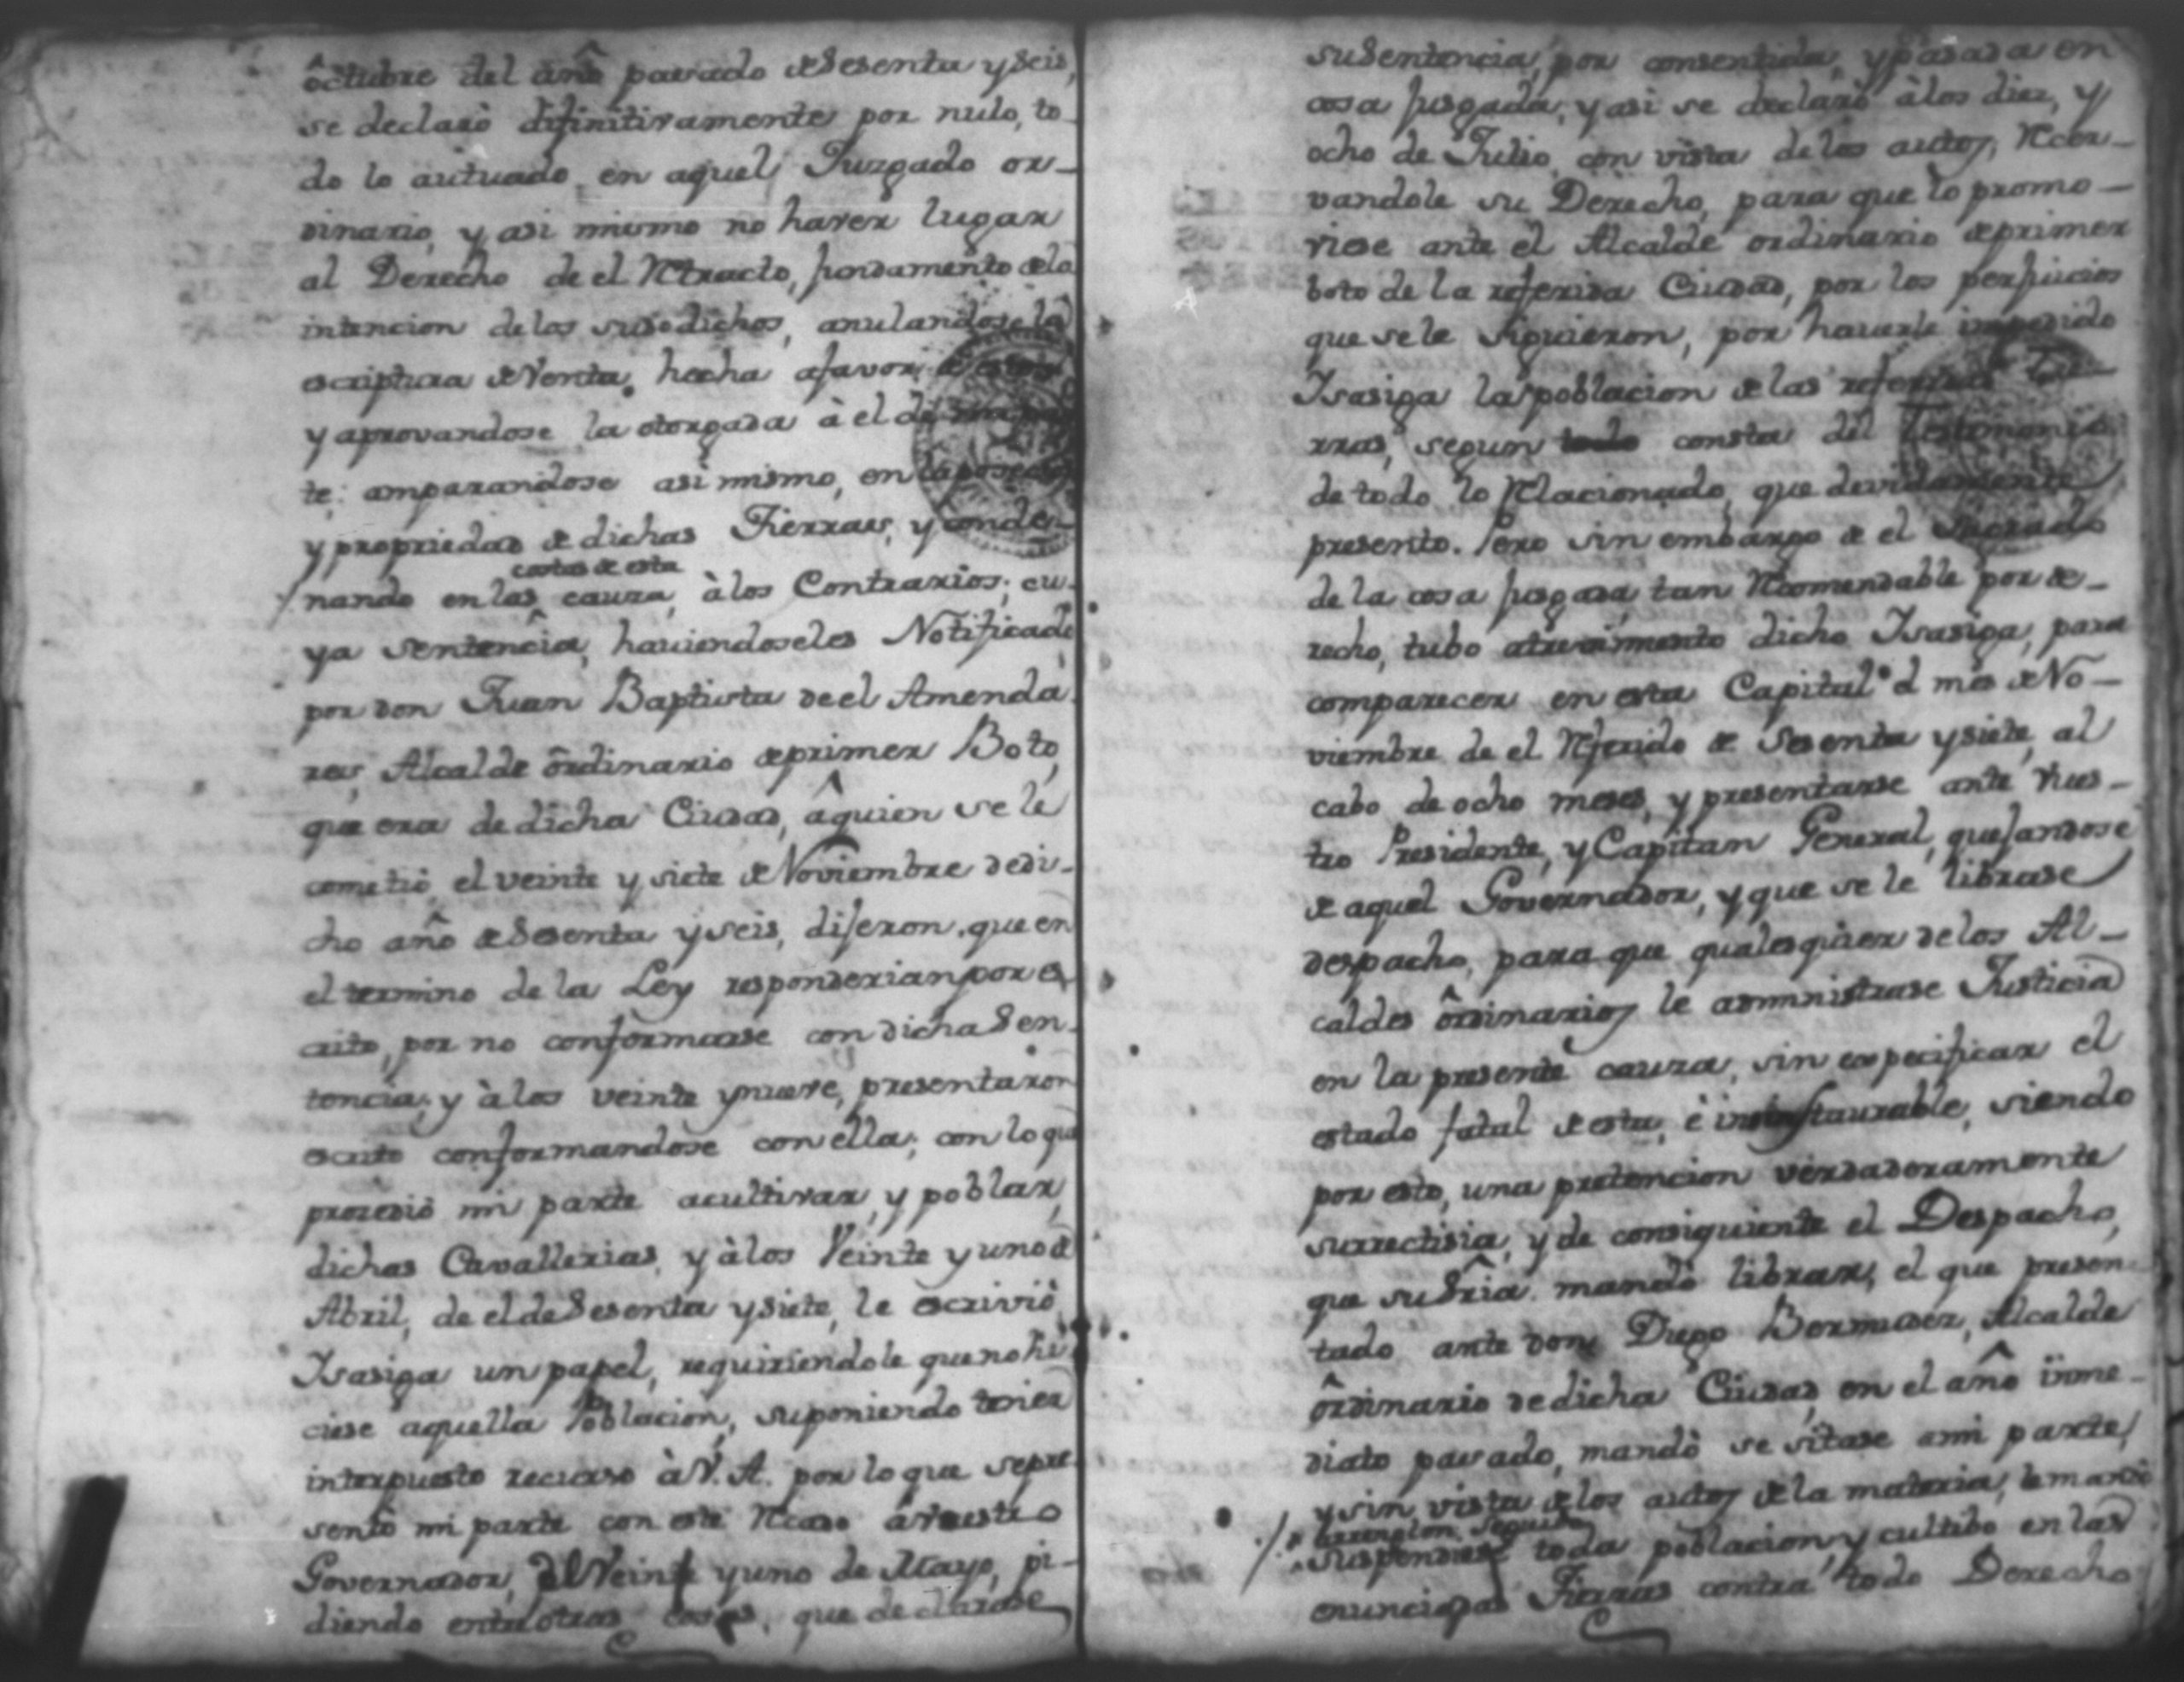 octubre del año pasado de Sesenta y seis,
se declarò difinitivamente por nulo, to-
do lo autuado en aquel Juzgado or-
dinario, y asi mismo no haver lugar
al Derecho de el Rtracto, fundamento de la
intencion de los susodichos, anulandose la
escriptura de Venta, hecha afavor de estos
y aprovandose la otorgada à el de mi par
te: amparandose asi mismo, en la
y propriedad de dichas Tierras, y conde-
costas de esta
nando en las cauza, à los Contrarios; cu-
ya sentencia, haviendoseles Notificado
por don Juan Baptista de el Amenda
res, Alcalde ôrdinario de primer Boto,
que era de dicha Ciudad, âquien se le
cometiò el veinte y siete de Noviembre dedi-
cho año de Sesenta y seis, dijeron, que en
el termino de la Ley responderian por es
crito, por no conformarse con dicha Sen-
tencia; y à los veinte y nueve, presentaron
escrito conformandose con ella; con lo que
procediò mi parte acultivar, y poblar,
dichas Cavallerias, y à los Veinte y uno de
Abril, de el de Sesenta y siete, le escriviò
Ysasiga un papel, requiriendole que no hi
ciese aquella Poblacion, suponiendo tener
interpuesto recurso à V. A. por lo que se pre-
sentò mi parte con este Rcado à vuestro
Governador, el Veinte y uno de Mayo, pi-
diendo entre otras cosas, que declarase
su Sentencia, por consentida, y pasada en
cosa jusgada; y asi se declarò à los diez, y
ocho de Julio, con vista de los autos, Rcer-
vandole su Derecho, para que lo promo-
viese ante el Alcalde ordinario de primer
boto de la referida Ciudad, por los perjuicios
que se le siguieron, por haverle impedido
Ysasiga la poblacion de las referidas Tie-
rras, segun consta del Testimonio
de todo lo Rlacionado, que devidamente
presento. Pero sin embargo de el Sagrado
de la cosa jusgada, tan Rcomendable por de-
recho, tubo atrevimiento dicho Ysasiga, para
comparecer en esta Capital el mes de No-
viembre de el Rferido de Sesenta y siete, al
cabo de ocho meses, y presentarse ante vues-
tro Presidente, y Capitan General, quejandose
de aquel Governador, y que se le librase
despacho, para que qualesquier de los Al-
caldes ôrdinarios le administrase Justicia
en la presente cauza, sin expecificar el
estado fatal de esta, è instaurable, siendo
por esto, una pretencion verdaderamente
surrectisia, y de consiguiente el Despacho,
que su Sria. mandò librar; el que presen-
tado ante don Diego Bermudez, Alcalde
ôrdinario de dicha Ciudad, en el año inme-
diato pasado, mandò se sitase a mi parte,
y sin vista de los autos de la materia, le mandò
suspendiese toda poblacion, y cultibo en las
enunciadas Tierras contra todo Derecho